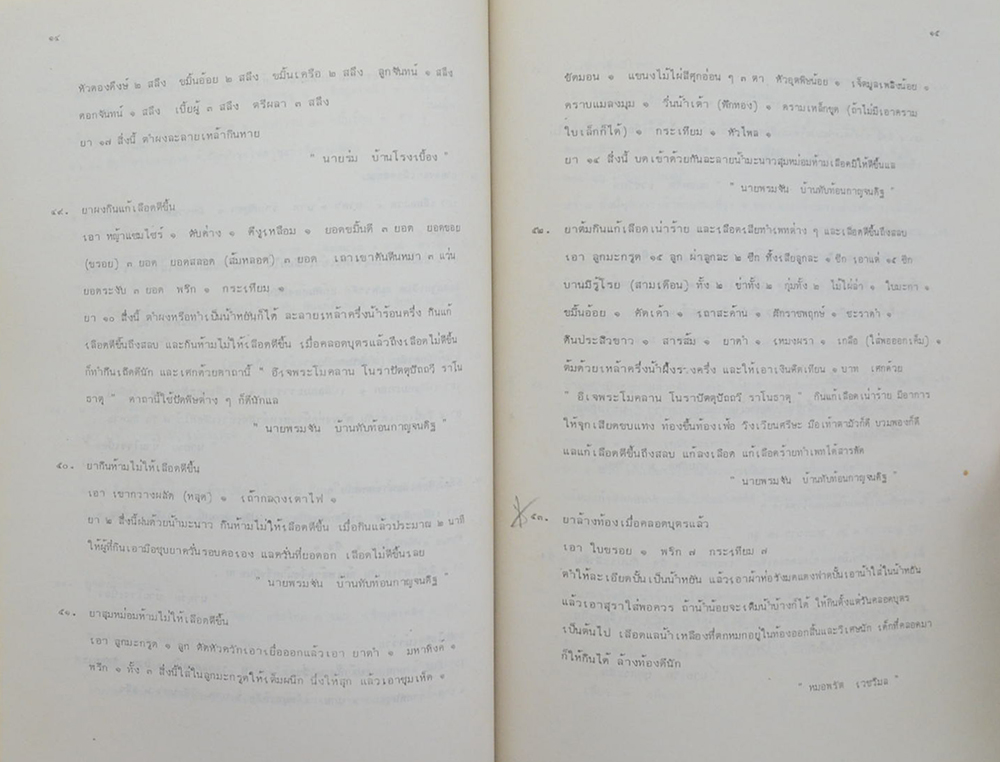 ๑๔
หัวดองดึงษ์ ๒ สลึง ขมิ้นอ้อย ๒ สลึง ขมิ้นเครือ ๒ สลึง ลูกจันทน์ ๑ สลึง
ดอกจันทน์ ๑ สลึง เบี้ยผู้ ๓ สลึง ตรีผลา ๓ สลึง
ยา ๑๗ สิ่งนี้ ตำผงละลายเหล้ากินหาย
" นายร่ม บ้านโรงเบื้อง "
๔๙. ยาผงกินแก้เลือดตีขึ้น
เอา หญ้าแซมไซร์ ๑ ตับค่าง ๑ ดีงูเหลือม ๑ ยอดขมิ้นดี ๓ ยอด ยอดขอย
(ขรอย) ๓ ยอด ยอดสลอด (ส้มหลอด) ๓ ยอด เถาเขาคันตีนหมา ๓ แว่น
ยอดระงับ ๓ ยอด พริก ๑ กระเทียม ๑
ยา ๑๐ สิ่งนี้ ตำผงหรือทำเป็นน้ำหยันก็ได้ ละลายเหล้าครึ่งน้ำร้อนครึ่ง กินแก้
เลือดตีขึ้นถึงสลบ และกินห้ามไม่ให้เลือดตีขึ้น เมื่อคลอดบุตรแล้วถึงเลือดไม่ตีขึ้น
ก็ทำกินเถิดดีนัก และเศกด้วยคาถานี้ " อิเจพระโมคลาน โนราปัตตุปัถถวี ราโน
ธาตุ " คาถานี้ใช้ปัดพิษต่าง ๆ ก็ดีนักแล
" นายพรมจัน บ้านทับท้อนกาญจนดิฐ "
๕๐. ยากินห้ามไม่ให้เลือดตีขึ้น
เอา เขากวางผลัด (หลุด) ๑ เถ้ากลางเตาไฟ ๑
ยา ๒ สิ่งนี้ฝนด้วยน้ำมะนาว กินห้ามไม่ให้เลือดตีขึ้น เมื่อกินแล้วประมาณ ๒ นาที
ให้ผู้ที่กินเอามือชุบยาครั่นรอบคอเอง แลครั่นที่ยอดอก เลือดไม่ตีขึ้นเลย
" นายพรมจัน บ้านทับท้อนกาญจนดิฐ "
๕๑. ยาสุมหม่อมห้ามไม่ให้เลือดตีขึ้น
เอา ลูกมะกรูด ๑ ลูก ตัดหัวควักเอาเยื่อออกแล้วเอา ยาดำ ๑ มหาหิงค์ ๑
พริก ๑ ทั้ง ๓ สิ่งนี้ใส่ในลูกมะกรูดให้เต็มผนึก นึ่งให้สุก แล้วเอาชุมเห็ด ๑
๑๕
ขัดมอน ๑ แขนงไม้ไผ่สีศุกอ่อน ๆ ๓ ตา หัวอุตพิษน้อย ๑ เจ็ตมูลเพลิงน้อย ๑
คราบแมลงมุม ๑ วื่นน้ำเต้า (ฟักทอง) ๑ ครามเหล็กขูด (ถ้าไม่มีเอาคราม
ใบเล็กก็ได้) ๑ กระเทียม ๑ หัวไพล ๑
ยา ๑๔ สิ่งนี้ บดเข้าด้วยกันละลายน้ำมะนาวสุมหม่อมห้ามเลือดมิให้ตีขึ้นแล
" นายพรมจัน บ้านทับท้อนกาญจนดิฐ "
๕๒. ยาต้มกินแก้เลือดเน่าร้าย และเลือดเสียทำเพทต่าง ๆ และเลือดตีขึ้นถึงสลบ
เอา ลูกมะกรูด ๑๕ ลูก ผ่าลูกละ ๒ ซีก ทิ้งเสียลูกละ ๑ ซีก เอาแต่ ๑๕ ซีก
บานมิรู้โรย (สามเดือน) ทั้ง ๒ ข่าทั้ง ๒ กุ่มทั้ง ๒ ไม้ไผ่ลำ ๑ ใบมะกา ๑
ขมิ้นอ้อย ๑ คัดเค้า ๑ เถาสะค้าน ๑ ฝักราชพฤกษ์ ๑ ชะราดำ ๑
ดินประสิวขาว ๑ สารส้ม ๑ ยาดำ ๑ เหมงผรา ๑ เกลือ (ใส่พอออกเค็ม) ๑
ต้มด้วยเหล้าครึ่งน้ำผึ้งรวงครึ่ง และให้เอาเงินติดเทียน ๑ บาท เศกด้วย
" อิเจพระโมคลาน โนราปัตตุปัถถวี ราโนธาตุ " กินแก้เลือดเน่าร้าย มีอาการ
ให้จุกเสียดขบแทง ท้องขึ้นท้องเฟ้อ วิงเวียนศรีษะ มือเท้าตามัวก็ดี บวมพองก็ดี
แลแก้เลือดตีขึ้นถึงสลบ แก้ลงเลือด แก้เลือดร้ายทำเพทได้สารพัด
" นายพรมจัน บ้านทับท้อนกาญจนดิฐ "
๕๓. ยาล้างท้องเมื่อคลอดบุตรแล้ว
เอา ใบขรอย ๑ พริก ๗ กระเทียม ๗
ตำให้ละเอียดปั้นเป็นน้ำหยัน แล้วเอาผ้าห่อรังมดแดงฟาดปั้นเอาน้ำใส่ในน้ำหยัน
แล้วเอาสุราใส่พอควร ถ้าน้ำน้อยจะเติมน้ำบ้างก็ได้ ให้กินตั้งแต่วันคลอดบุตร
เป็นต้นไป เลือดแลน้ำเหลืองที่ตกหมกอยู่ในท้องออกสิ้นและวิเศษนัก เด็กที่คลอดมา
ก็ให้กินได้ ล้างท้องดีนัก
" หมอพรัด เวชวิมล "